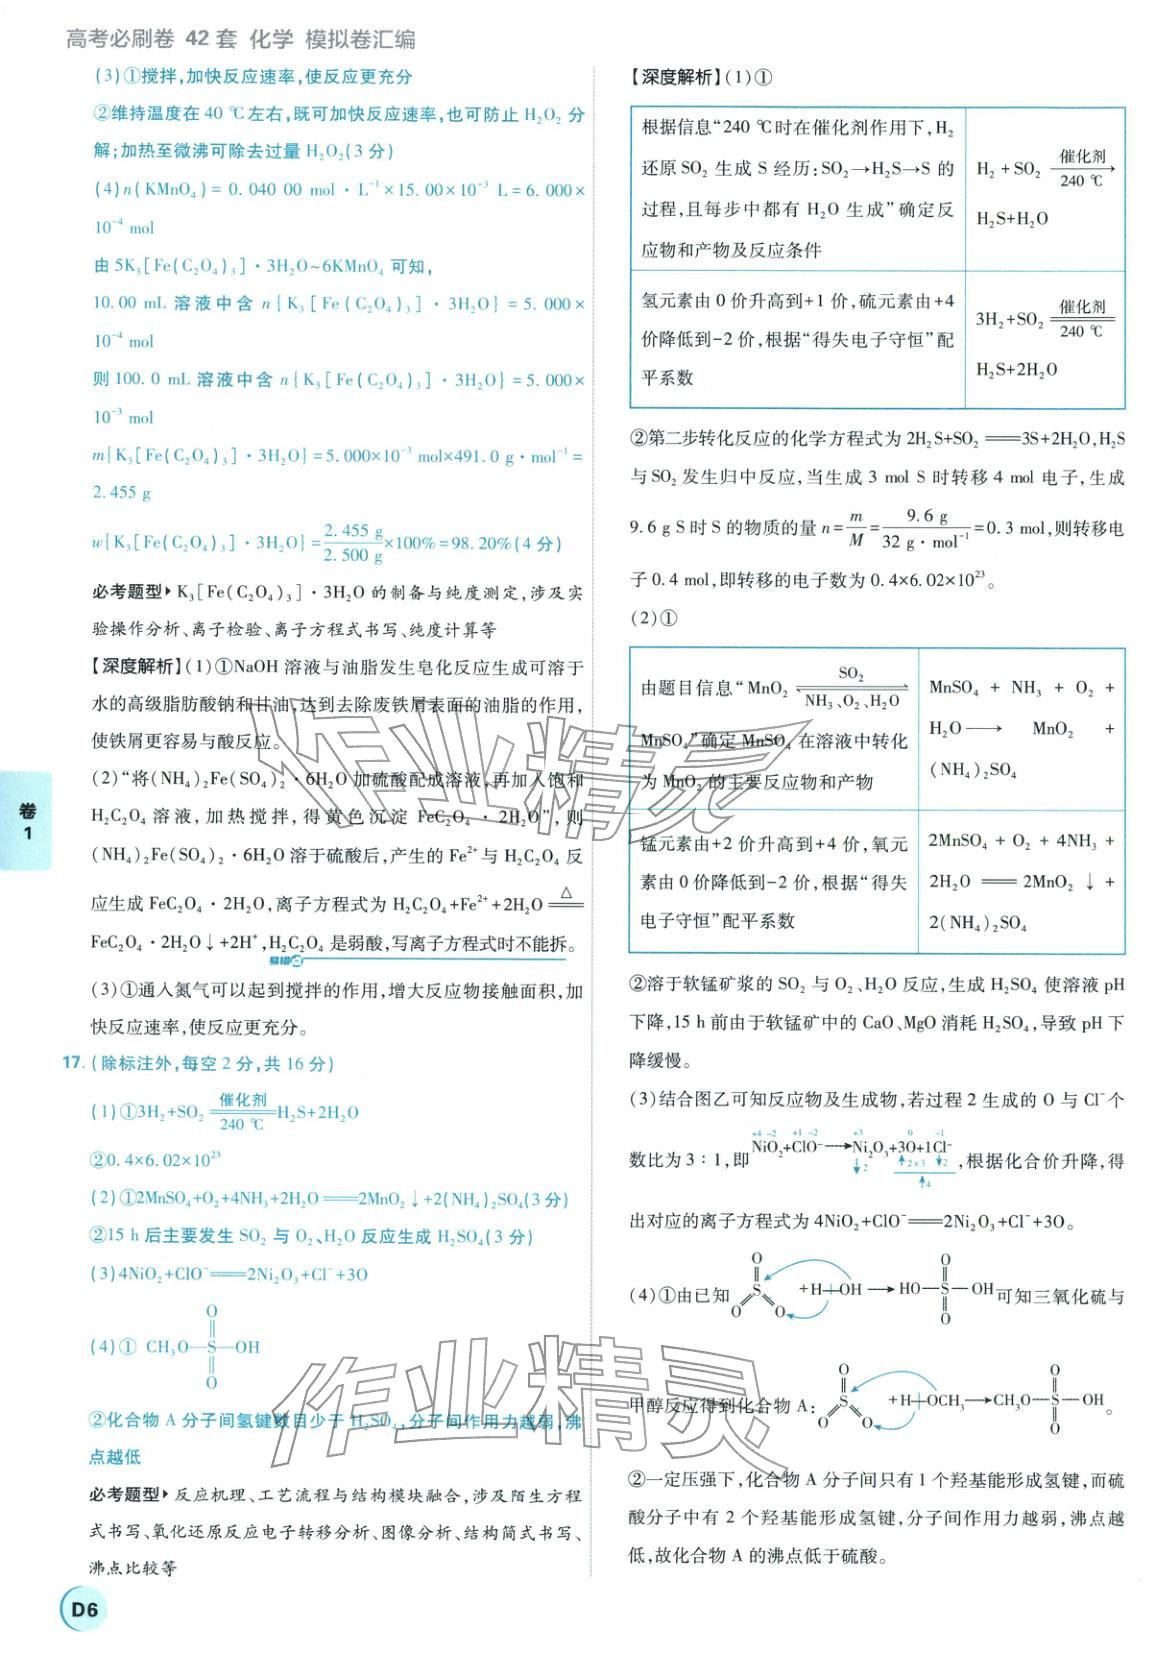 高考必刷卷 42套 化学 模拟卷汇编
(3)①搅拌,加快反应速率,使反应更充分
②维持温度在 40 ℃左右,既可加快反应速率,也可防止 H₂O₂ 分
解;加热至微沸可除去过量 H₂O₂(3 分)
(4)n(KMnO₄)= 0.040 00 mol·L⁻¹×15.00×10⁻³ L=6.000×
10⁻⁴ mol
由 5K₃[Fe(C₂O₄)₃]·3H₂O~6KMnO₄ 可知,
10.00 mL 溶液中含 n{K₃[Fe(C₂O₄)₃]·3H₂O}=5.000×
10⁻⁴ mol
则 100.0 mL 溶液中含 n{K₃[Fe(C₂O₄)₃]·3H₂O}=5.000×
10⁻³ mol
m{K₃[Fe(C₂O₄)₃]·3H₂O}=5.000×10⁻³ mol×491.0 g·mol⁻¹=
2.455 g
w{K₃[Fe(C₂O₄)₃]·3H₂O}=2.455 g/2.500 g×100%=98.20%(4 分)
必考题型▶K₃[Fe(C₂O₄)₃]·3H₂O 的制备与纯度测定,涉及实
验操作分析、离子检验、离子方程式书写、纯度计算等
【深度解析】(1)①NaOH 溶液与油脂发生皂化反应生成可溶于
水的高级脂肪酸钠和甘油,达到去除废铁屑表面的油脂的作用,
使铁屑更容易与酸反应。
(2)“将(NH₄)₂Fe(SO₄)₂·6H₂O 加硫酸配成溶液,再加入饱和
H₂C₂O₄ 溶液,加热搅拌,得黄色沉淀 FeC₂O₄·2H₂O”,则
(NH₄)₂Fe(SO₄)₂·6H₂O 溶于硫酸后,产生的 Fe²⁺与 H₂C₂O₄ 反
应生成 FeC₂O₄·2H₂O,离子方程式为 H₂C₂O₄+Fe²⁺+2H₂O ══△══
FeC₂O₄·2H₂O↓+2H⁺,H₂C₂O₄ 是弱酸,写离子方程式时不能拆。
易错
(3)①通入氮气可以起到搅拌的作用,增大反应物接触面积,加
快反应速率,使反应更充分。
17.(除标注外,每空 2 分,共 16 分)
(1)①3H₂+SO₂ ══催化剂/240 ℃══ H₂S+2H₂O
②0.4×6.02×10²³
(2)①2MnSO₄+O₂+4NH₃+2H₂O══2MnO₂↓+2(NH₄)₂SO₄(3 分)
②15 h 后主要发生 SO₂ 与 O₂、H₂O 反应生成 H₂SO₄(3 分)
(3)4NiO₂+ClO⁻══2Ni₂O₃+Cl⁻+3O
O
(4)① CH₃O—S—OH
O
②化合物 A 分子间氢键数目少于 H₂SO₄,分子间作用力越弱,沸
点越低
必考题型▶反应机理、工艺流程与结构模块融合,涉及陌生方程
式书写、氧化还原反应电子转移分析、图像分析、结构简式书写、
沸点比较等
卷
1
D6
【深度解析】(1)①
根据信息“240 ℃时在催化剂作用下,H₂
还原 SO₂ 生成 S 经历:SO₂→H₂S→S 的
过程,且每步中都有 H₂O 生成”确定反
应物和产物及反应条件
H₂ + SO₂ ──催化剂/240 ℃→
H₂S+H₂O
氢元素由 0 价升高到+1 价,硫元素由+4
价降低到-2 价,根据“得失电子守恒”配
平系数
3H₂+SO₂ ══催化剂/240 ℃══
H₂S+2H₂O
②第二步转化反应的化学方程式为 2H₂S+SO₂══3S+2H₂O,H₂S
与 SO₂ 发生归中反应,当生成 3 mol S 时转移 4 mol 电子,生成
9.6 g S 时 S 的物质的量 n=m/M=9.6 g/32 g·mol⁻¹=0.3 mol,则转移电
子 0.4 mol,即转移的电子数为 0.4×6.02×10²³。
(2)①
由题目信息“MnO₂ ⇌ SO₂/NH₃、O₂、H₂O
MnSO₄”确定 MnSO₄ 在溶液中转化
为 MnO₂ 的主要反应物和产物
MnSO₄ + NH₃ + O₂ +
H₂O ⟶ MnO₂ +
(NH₄)₂SO₄
锰元素由+2 价升高到+4 价,氧元
素由 0 价降低到-2 价,根据“得失
电子守恒”配平系数
2MnSO₄ + O₂ + 4NH₃ +
2H₂O ══ 2MnO₂ ↓ +
2(NH₄)₂SO₄
②溶于软锰矿浆的 SO₂ 与 O₂、H₂O 反应,生成 H₂SO₄ 使溶液 pH
下降,15 h 前由于软锰矿中的 CaO、MgO 消耗 H₂SO₄,导致 pH 下
降缓慢。
(3)结合图乙可知反应物及生成物,若过程 2 生成的 O 与 Cl⁻个
+4 -2 +1 -2 +3 0 -1
数比为 3∶1,即 NiO₂+ClO⁻⟶Ni₂O₃+3O+1Cl⁻,根据化合价升降,得
↓2 ↑2×3 ↓2
↑4
出对应的离子方程式为 4NiO₂+ClO⁻══2Ni₂O₃+Cl⁻+3O。
O O
(4)①由已知 S +H—OH⟶HO—S—OH可知三氧化硫与
O O O
O O
甲醇反应得到化合物 A: S +H—OCH₃⟶CH₃O—S—OH。
O O O
②一定压强下,化合物 A 分子间只有 1 个羟基能形成氢键,而硫
酸分子中有 2 个羟基能形成氢键,分子间作用力越弱,沸点越
低,故化合物 A 的沸点低于硫酸。
作业精灵
作业精灵